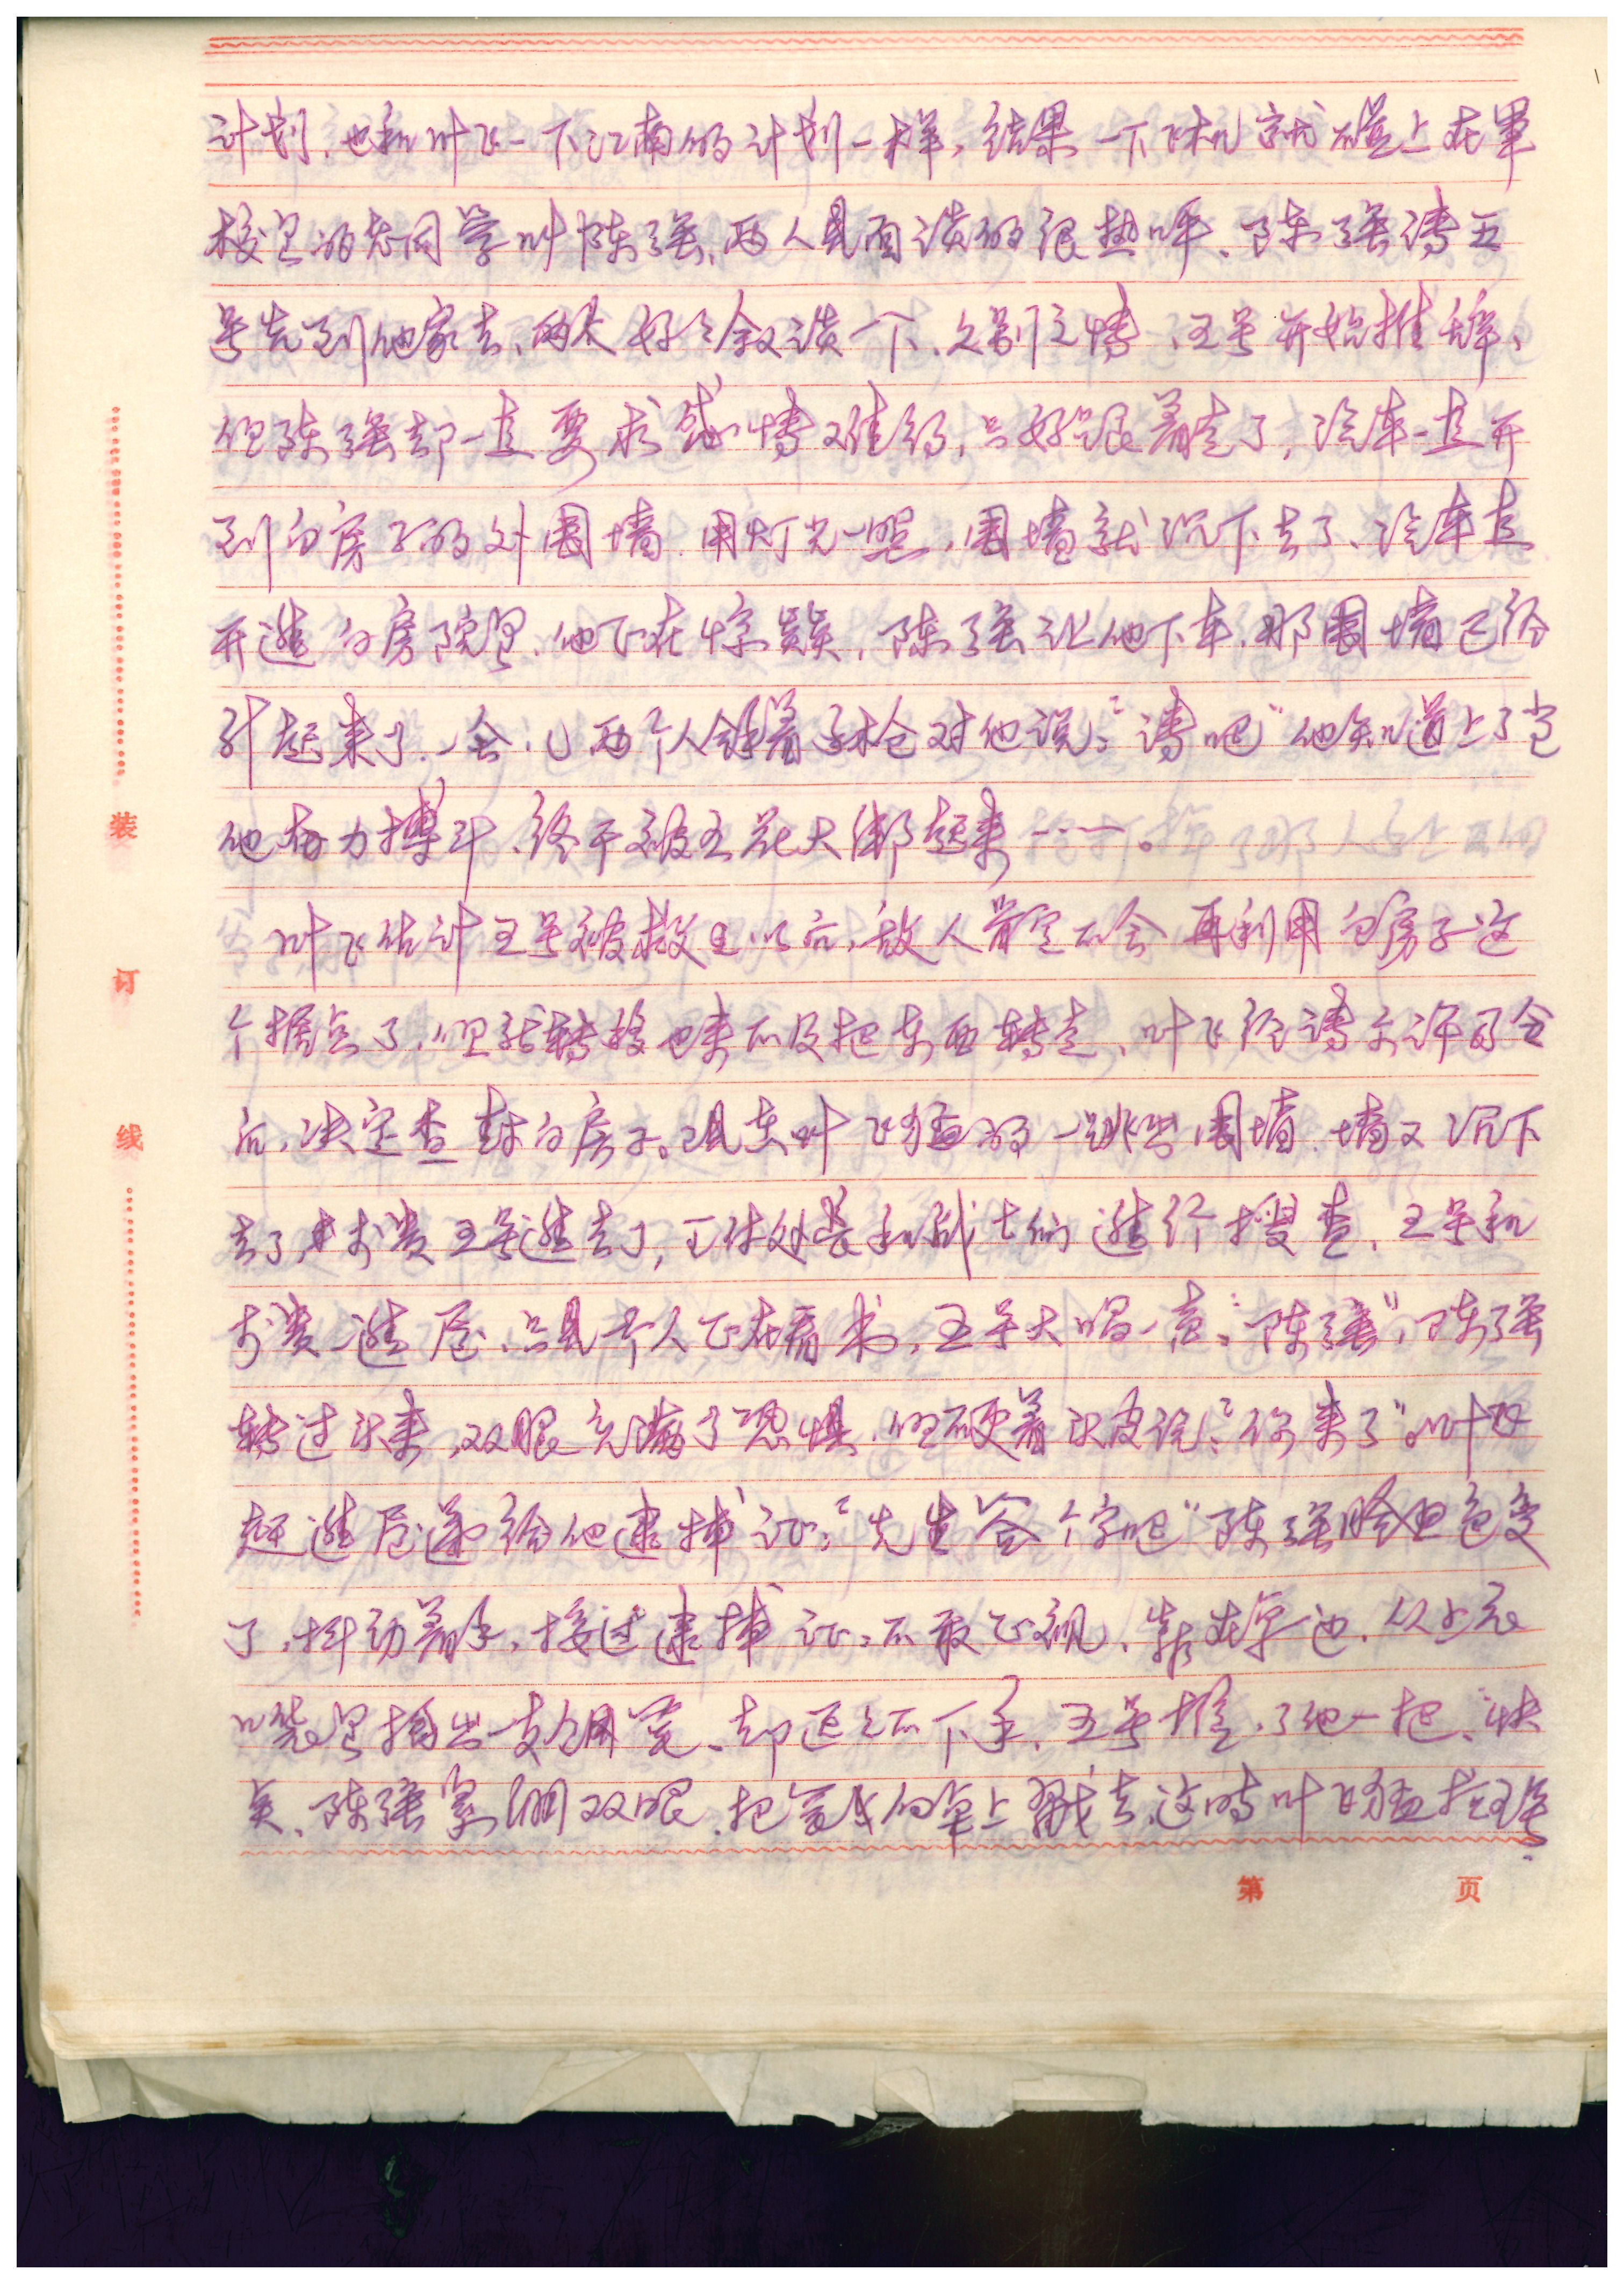 计划，也和叶飞一下江南的计划一样，结果一下飞机就碰上在军
校里的老同学叫陈强，两人见面谈的很热呼，陈强请五
号先到他家去，两人好好叙谈一下，久别之情，五号开始推辞，
但陈强却一直要求盛情难却，只好跟着走了，汽车一直开
到白房子的外围墙，用灯光一照，围墙就沉下去了，汽车直
开进白房院里，他正在惊疑，陈强让他下车，那围墙已经
升起来了，一会儿两个人拿着手枪对他说："请吧"他知道上了当
他奋力搏斗，终于被五花大绑起来……。
叶飞估计五号被救出以后，敌人肯定不会再利用白房子这
个据点了，但就转移也来不及把东西转走，叶飞经请示许司令
后，决定查封白房子。现在叶飞猛的一跳出围墙，墙又沉下
去了，才贵五号进去了，丁体处长和战士们进行搜查，五号和
才贵一进屋，只见本人正在看书，五号大喝一声："陈强"，陈强
转过头来，双眼充满了恐惧，但硬着头皮说："你来了"。叶飞
赶进屋递给他逮捕证："先生签个字吧"陈强脸也色变
了，抖动着手，接过逮捕证，不敢正视，靠在桌边，从上衣
口袋里掏出一支钢笔，却迟迟不下手，五号推了他一把，"快
点，陈强紧闭双眼，把笔尖向桌上戳去，这时叶飞猛拉五号
装
订
线
第 页